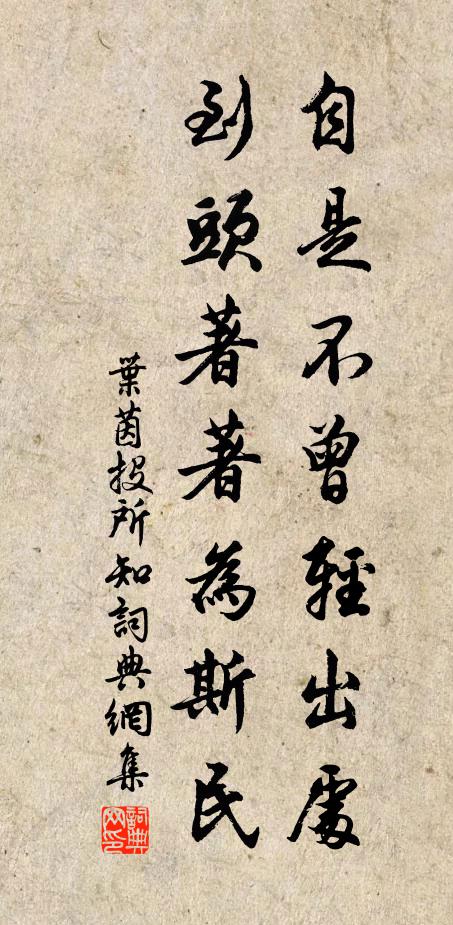 自是不曾輕出處
到頭著著為斯民
葉茵投所知詞典網集
詞典網印